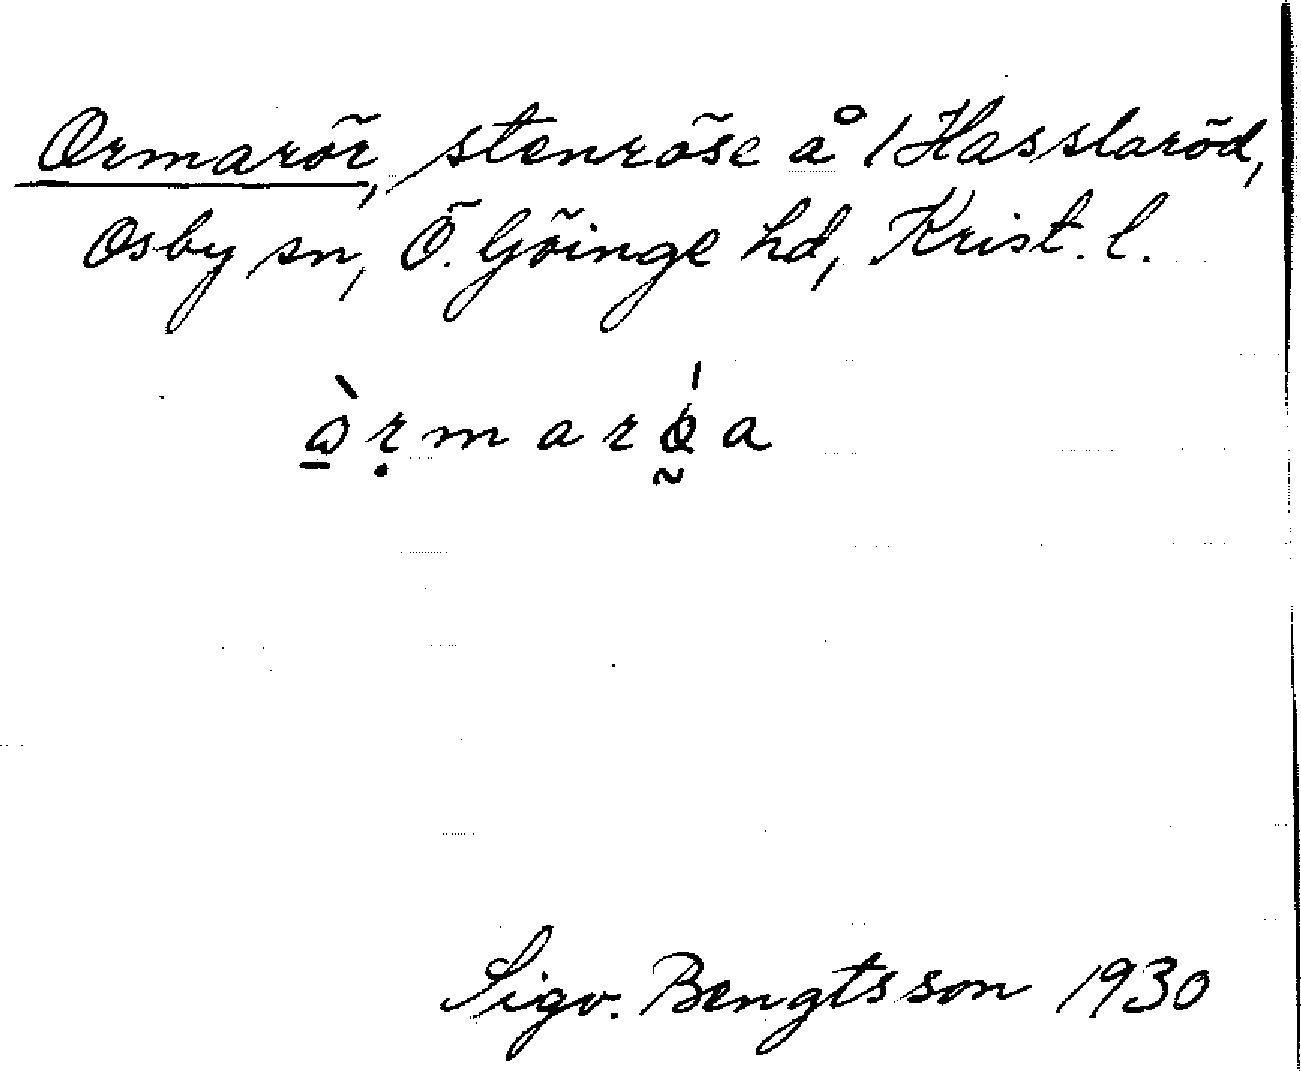 Ormarör, stenröse å 1 Hasslaröd,
Osby sn, Ö. Göinge hd, Krist. l.
Sigv. Bengtsson 1930